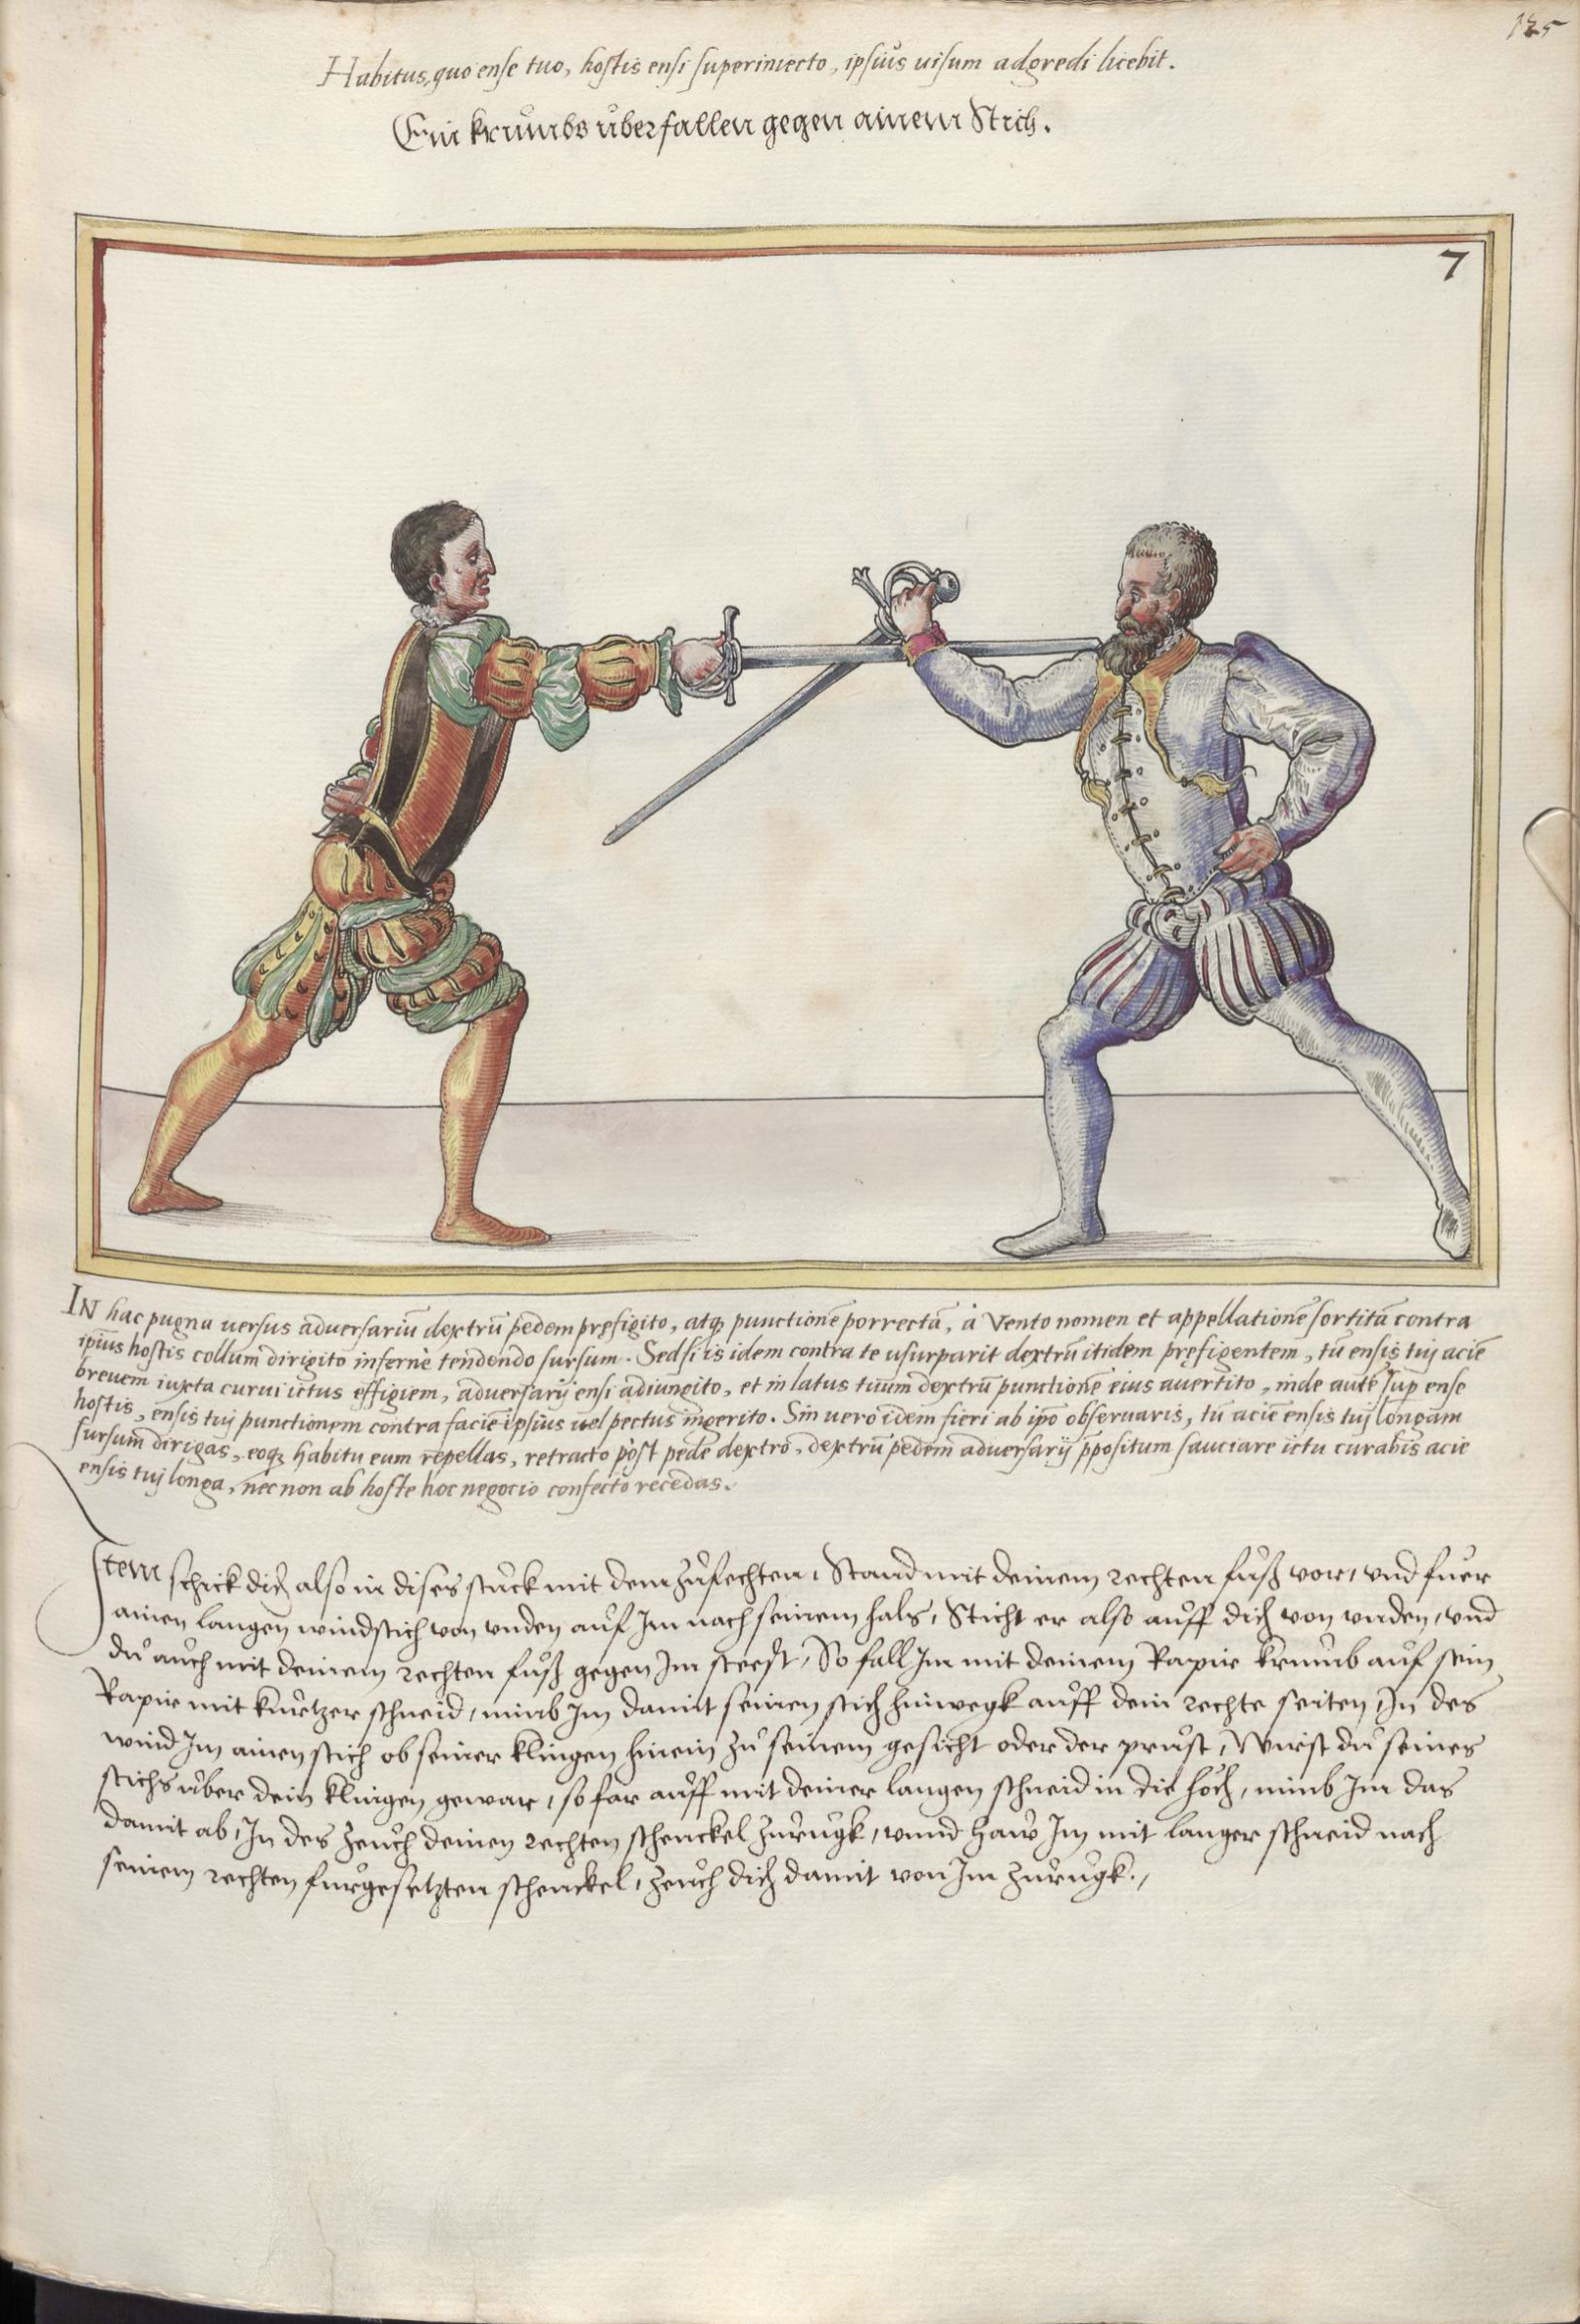 125
Habitus, quo ense tuo, hostis ensi superiniecto, ipsius uisum adgredi licebit.
Ein krumbs überfallen gegen ainem Stich.
7
IN hac pugna uersus aduersariũ dextrũ pedem pręfigito, atq; punctionẽ porrectã, à Vento nomen et appellationẽ sortitã contra
ipius hostis collum dirigito infernè tendendo sursum. Sed si is idem contra te usurparit dextrũ itidem pręfigentem, tũ ensis tuj aciẽ
breuem iuxta curui ictus effigiem, aduersarij ensi adiungito, et in latus tuum dextrũ punctionẽ eius auertito, inde autẽ sup ense
hostis, ensis tuj punctionem contra faciẽ ipsius uel pectus ingerito. Sin uero idem fieri ab ipõ obseruaris, tũ aciẽ ensis tuj longam
sursum dirigas, eoq; habitu eum repellas, retracto pòst pedẽ dextro, dextrũ pedem aduersarij p̄positum sauciare ictu curabis acie
ensis tuj longa, nec non ab hoste hoc negocio confecto recedas.
Item schick dich also in dises stuck mit dem zůfechten, Stand mit deinem rechten fůß vor, vnd fuer
ainen langen windstich von vnden auf Im nach seinem hals, Sticht er also auff dich von vnden, vnd
du auch mit deinem rechten fůß gegen Im steest, So fall Im mit deinem Rapir krumb auf sein
Rapir mit kurtzer schneid, nimb Im damit seinen stich hinwegk auff dein rechte seiten, In des
wind Im ainen stich ob seiner klingen hinein zů seinem gesicht oder der prust, Wirst du seines
stichs über dein klingen gewar, so far auff mit deiner langen schneid in die höch, nimb Im das
damit ab, In des zeuch deinen rechten schenckel zurugk, vnnd haw Im mit langer schneid nach
seinem rechten furgesetzten schenckel, zeuch dich damit von Im zurugk.,